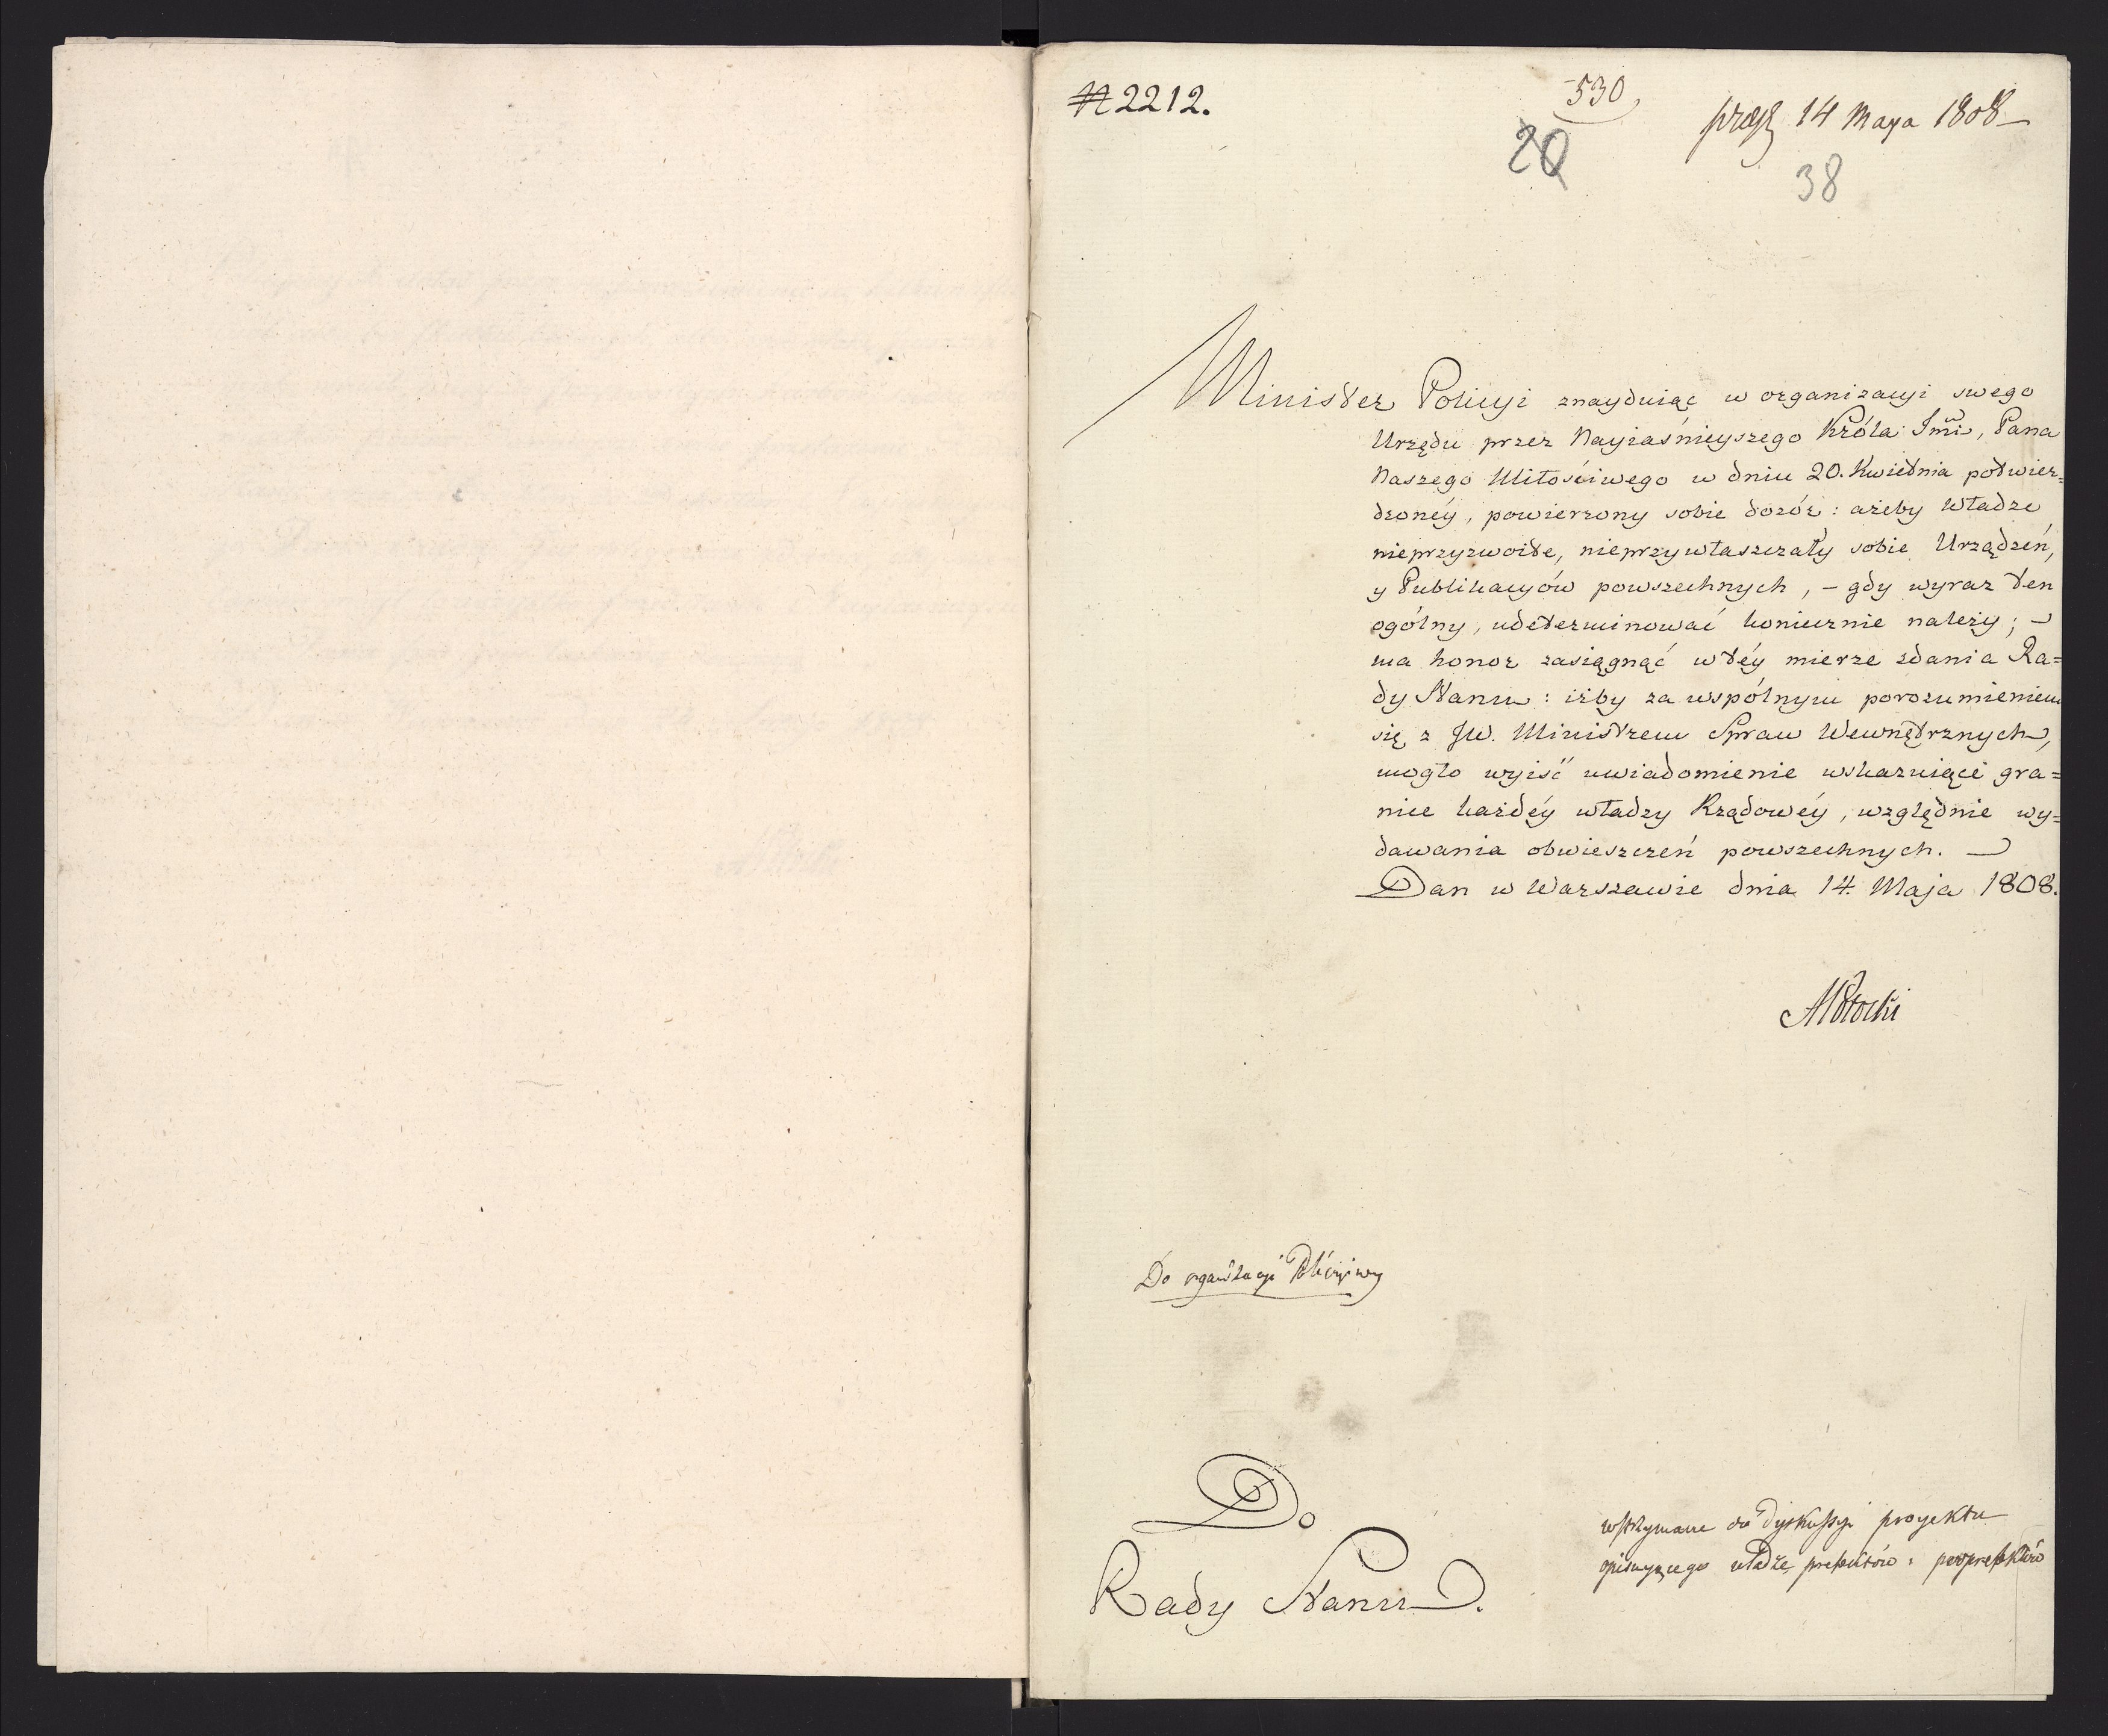 N 2212.
530
præs 14 Maya 1808
20
38
Minister Policyi znayduiąc w organizacyi swego
Urzędu przez Nayiaśnieyszego Króla Jmci, Pana
Naszego Miłościwego w dniu 20. Kwietnia potwier=
dzonéy, powierzony sobie dozór: ażeby Władze
nieprzyzwoite, nieprzywłaszczały sobie Urządzeń,
y Publikacyów powszechnych, – gdy wyraz ten
ogólny, udeterminować koniecznie należy; –
ma honor zasiągnąć w téy mierze zdania Ra=
dy Stanu: iżby za wspólnym porozumieniem
się z JW. Ministrem Spraw Wewnętrznych,
mogło wyiść uwiadomienie wskazuiące gra=
nice każdéy władzy Rządowéy, względnie wy=
dawania obwieszczeń powszechnych. –
Dan w Warszawie dnia 14. Maja 1808.
APotocki
Do organizacyi Policyiney
Do
Rady Stanu.
wstrzymane do dyskussyi proyektu
opisuyącego władzę prefektów i podprefektów